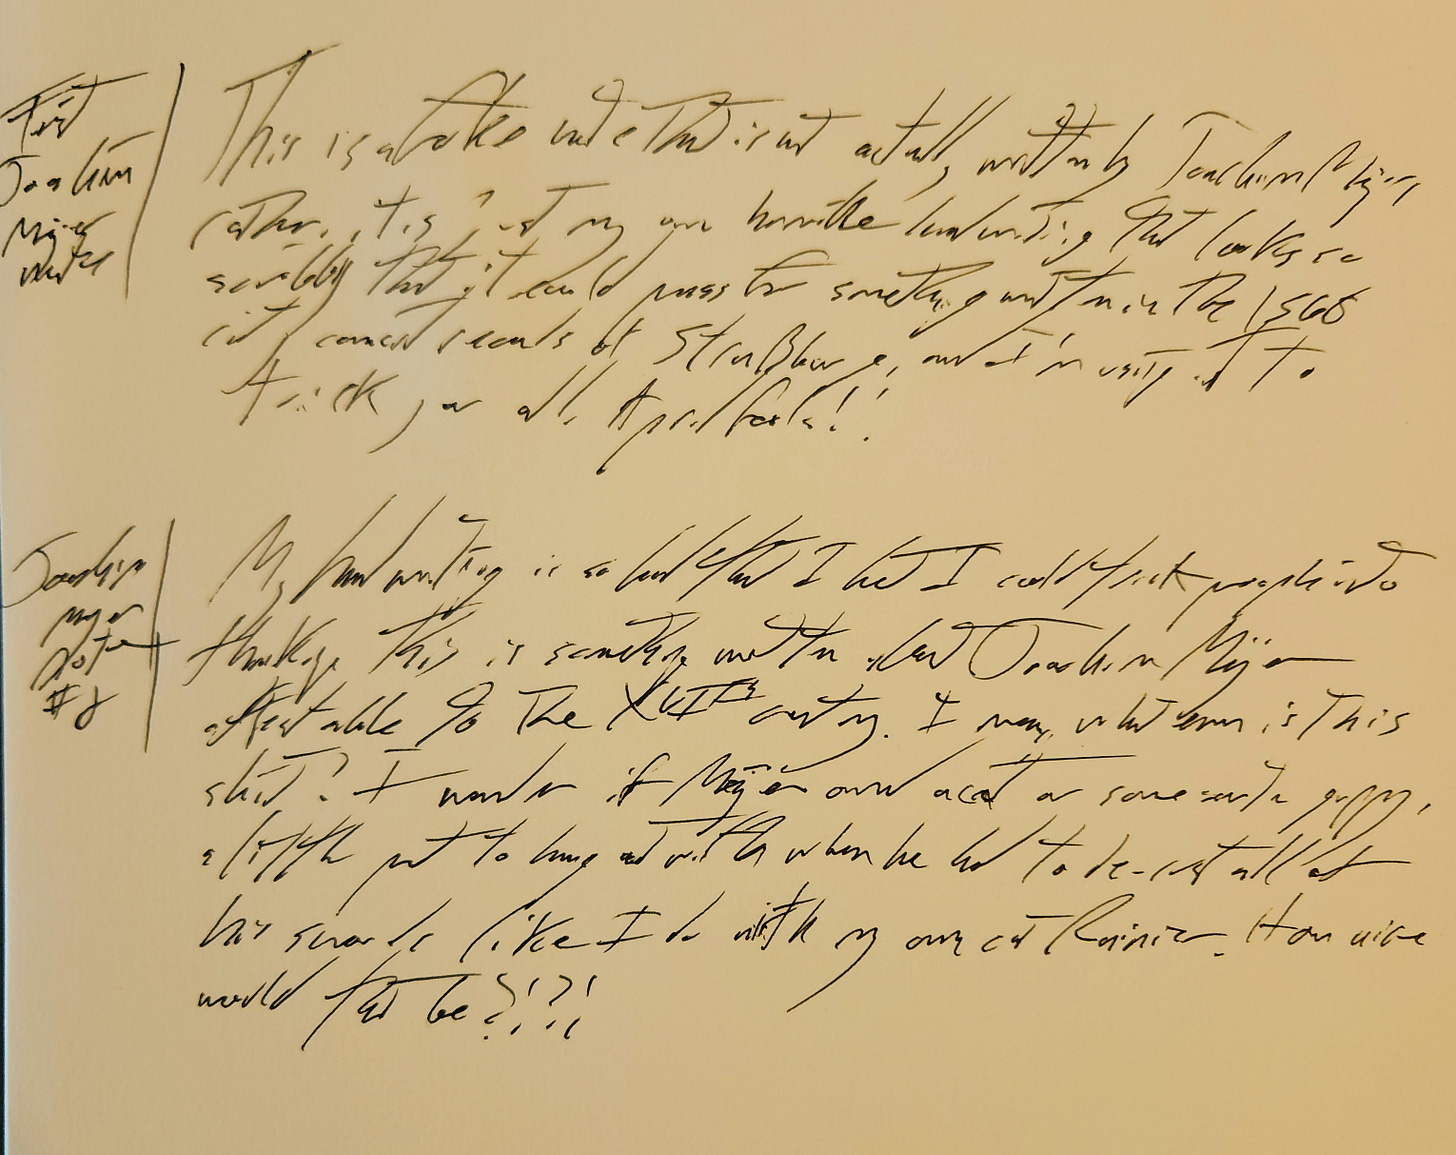 First
Joachim
Meyer
note
This is a fake note that is not actually written by Joachim Meyer,
rather, it is just my own horrible handwriting that looks so
scribbly that it could pass for something written in the 1560s
city council records of Straßburg, and I'm using it to
trick you all. April fools!!
Joachim
Meyer
note
#2
My handwriting is so bad that I bet I could trick people into
thinking this is something written about Joachim Meÿer
attestable to the XVIth century. I mean, what even is this
shit? I wonder if Meÿer owned a cat or some sort a guppy,
a little pet to hang out with when he had to de-rust all of
his swords like I do with my own cat Rainier. How nice
would that be?!?!